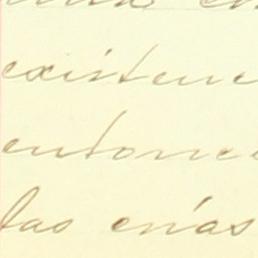 existenc
entonce
las crías